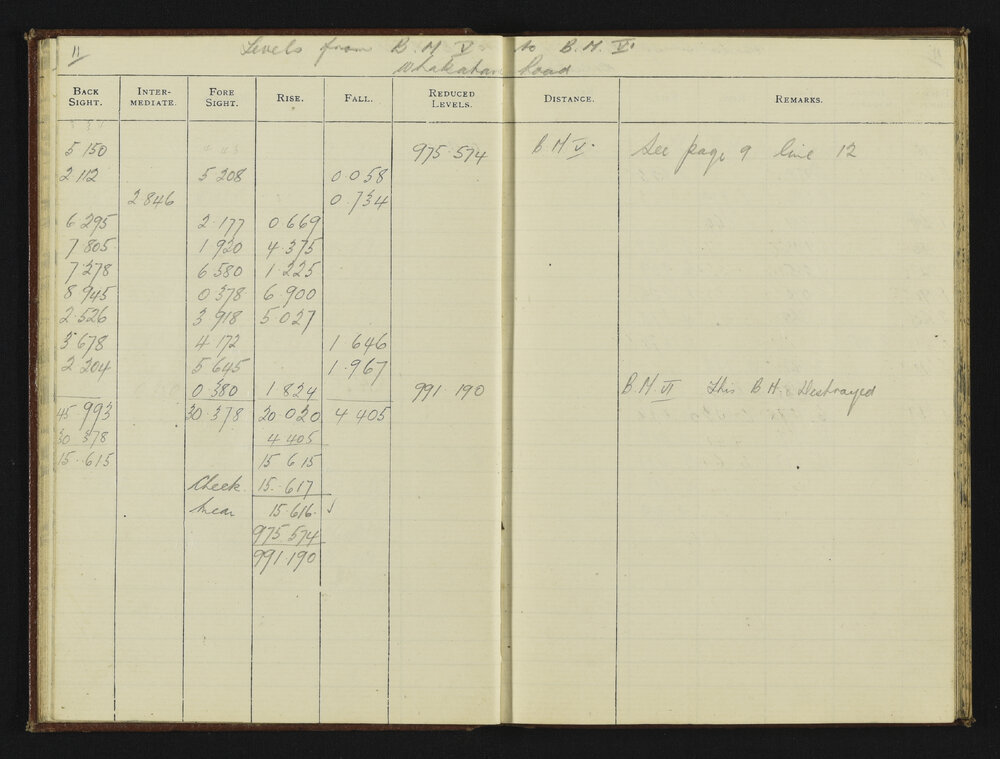 11 Levels from B M V to B.M. VI
Whakatane Road
BACK SIGHT. INTER-MEDIATE. FORE SIGHT. RISE. FALL. REDUCED LEVELS. DISTANCE. REMARKS.
5 150 975·574 B M V· See page 9 line 12
2 112 5 208 0 058
2 846 0 734
6 295 2·177 0 669
7 805 1 920 4·375
7 278 6 580 1 225
8 945 0 378 6 900
2·526 3 918 5·027
3 678 4 172 1 646
2 204 5 645 1·967
0 380 1 824 991 190 B.M VI This B M Destroyed
45 993 30·378 20 020 4 405
30 378 4 405
15·615 15 615
Check 15·617
Mean 15 616·
975 574
991·190